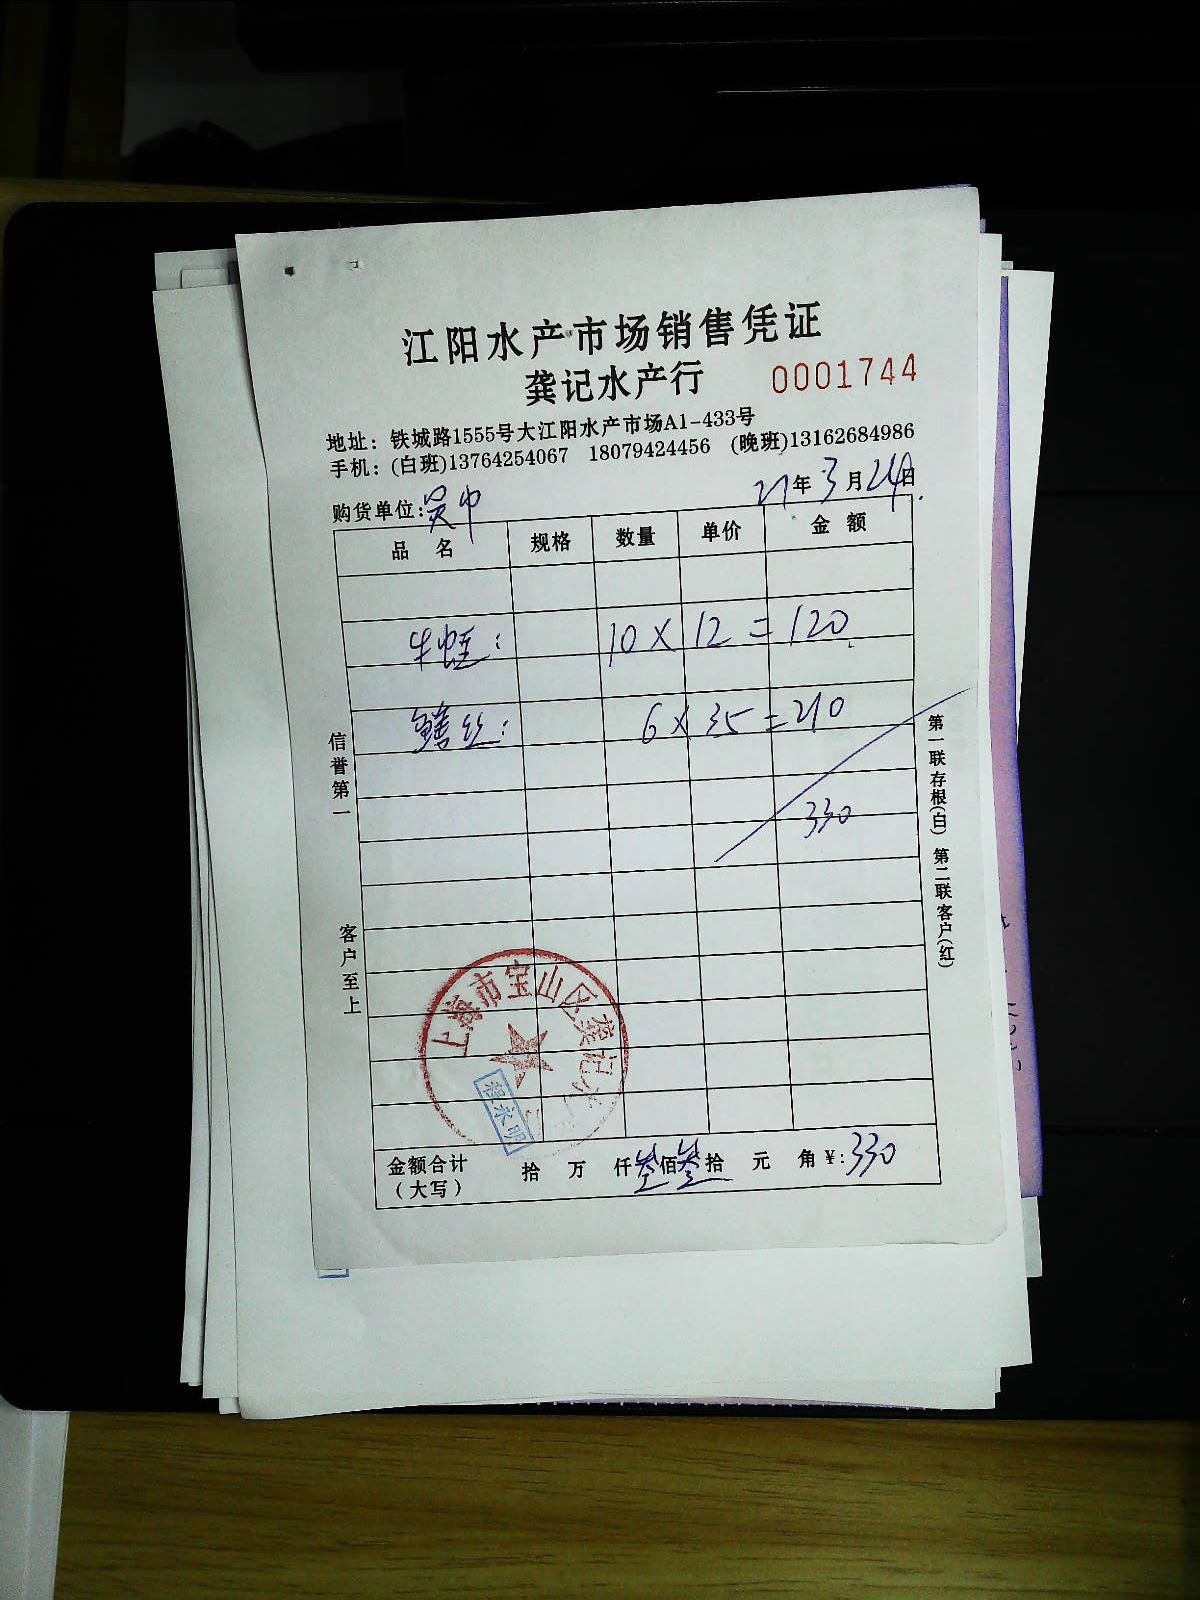 江阳水产市场销售凭证
龚记水产行 0001744
地址：铁城路1555号大江阳水产市场A1-433号
手机：(白班)13764254067 18079424456 (晚班)13162684986
购货单位: 吴中 21年3月24日
品 名 规格 数量 单价 金 额
牛蛙: 10 X 12 = 120
鳝丝: 6 X 35 = 210
330
信誉第一
客户至上
第一联存根(白) 第二联客户(红)
上海市宝山区龚记水
程永明
金额合计 拾 万 仟叁佰叁拾 元 角 ¥:330
(大写)